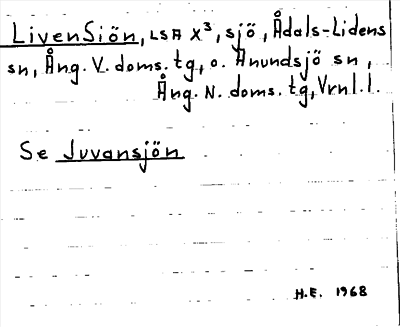 LivenSiön, LSA X³, sjö, Ådals-Lidens
sn, Ång. V. doms. tg, o. Anundsjö sn,
Ång. N. doms. tg, Vrnl. l.
Se Juvansjön
H.E. 1968